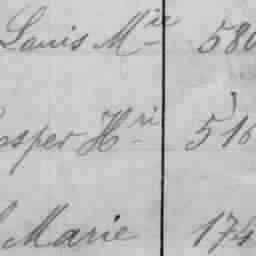 Louis Mie 580
osper Hri 516
Marie 174